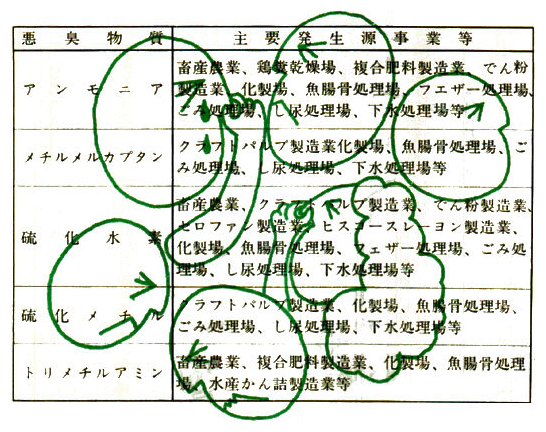 悪臭物質 主要発生源事業等
アンモニア
畜産農業、鶏糞乾燥場、複合肥料製造業、でん粉
製造業、化製場、魚腸骨処理場、フエザー処理場、
ごみ処理場、し尿処理場、下水処理場等
メチルメルカプタン
クラフトパルプ製造業化製場、魚腸骨処理場、ご
み処理場、し尿処理場、下水処理場等
硫化水素
畜産農業、クラフトパルプ製造業、でん粉製造業、
セロファン製造業、ビスコースレーヨン製造業、
化製場、魚腸骨処理場、フェザー処理場、ごみ処
理場、し尿処理場、下水処理場等
硫化メチル
クラフトパルプ製造業、化製場、魚腸骨処理場、
ごみ処理場、し尿処理場、下水処理場等
トリメチルアミン
畜産農業、複合肥料製造業、化製場、魚腸骨処理
場、水産かん詰製造業等